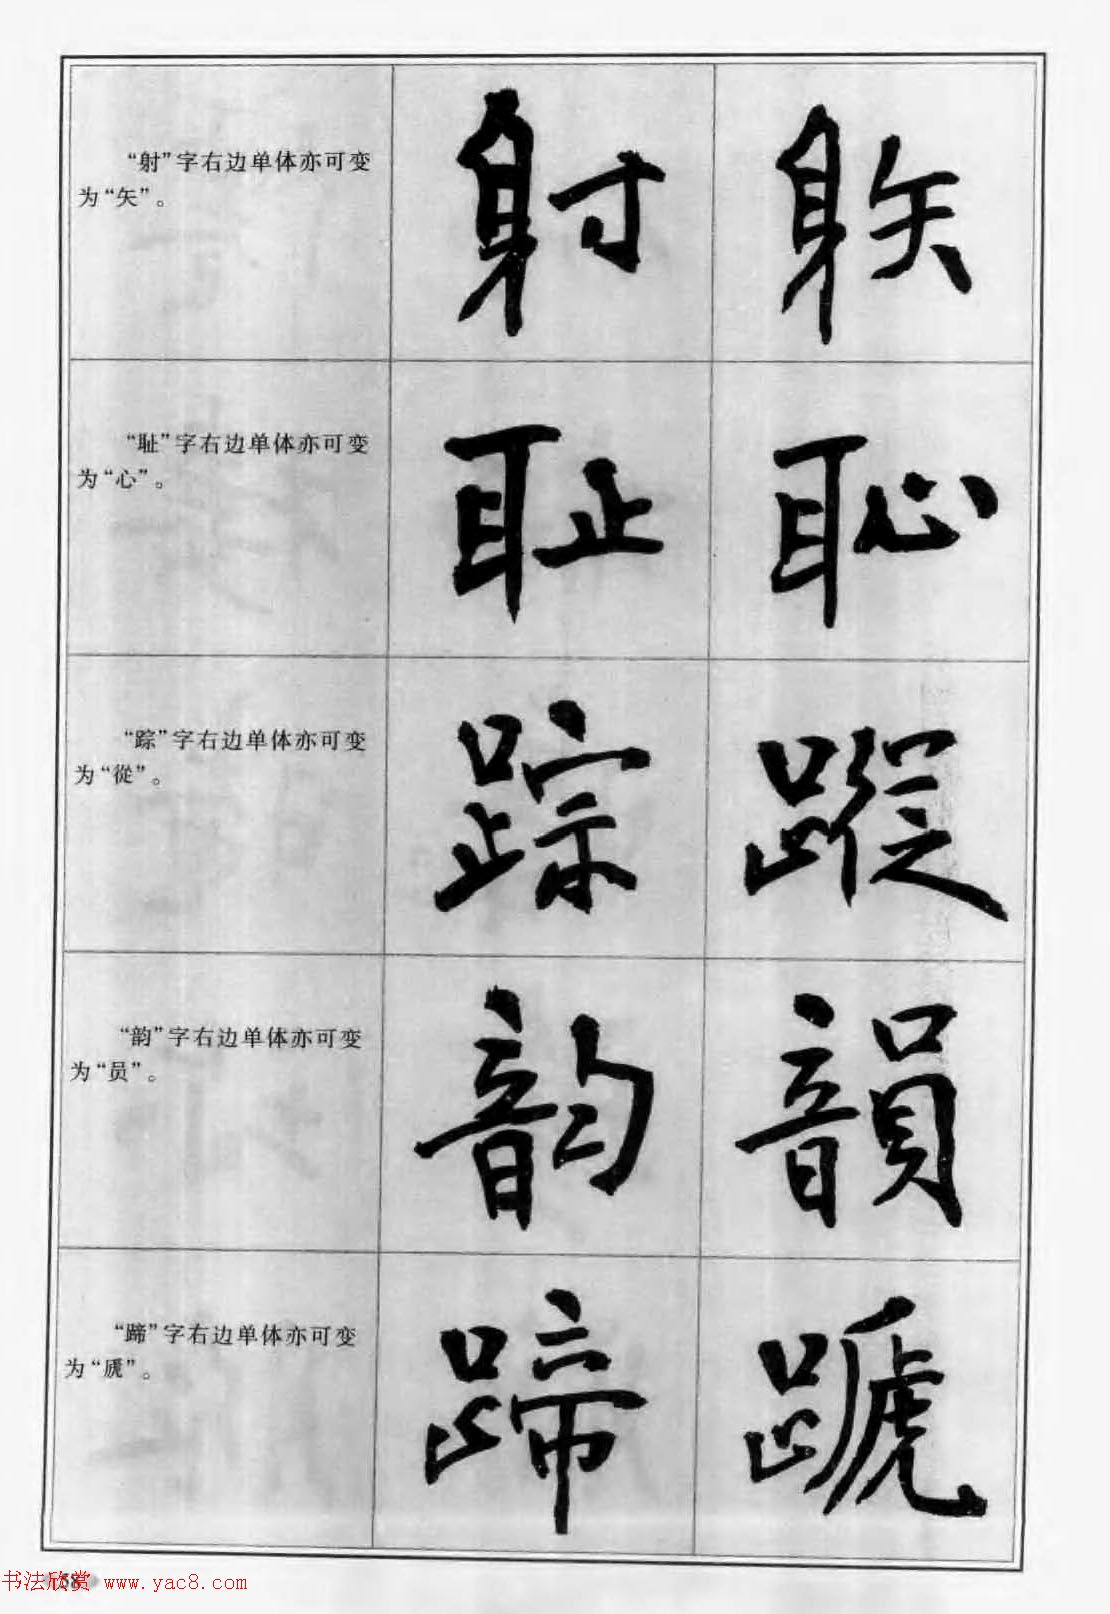 “射”字右边单体亦可变
为“矢”。
射 躲
“耻”字右边单体亦可变
为“心”。
耻 恥
“踪”字右边单体亦可变
为“從”。
踪 蹤
“韵”字右边单体亦可变
为“员”。
韵 韻
“蹄”字右边单体亦可变
为“虒”。
蹄 蹏
58
书法欣赏 www.yac8.com